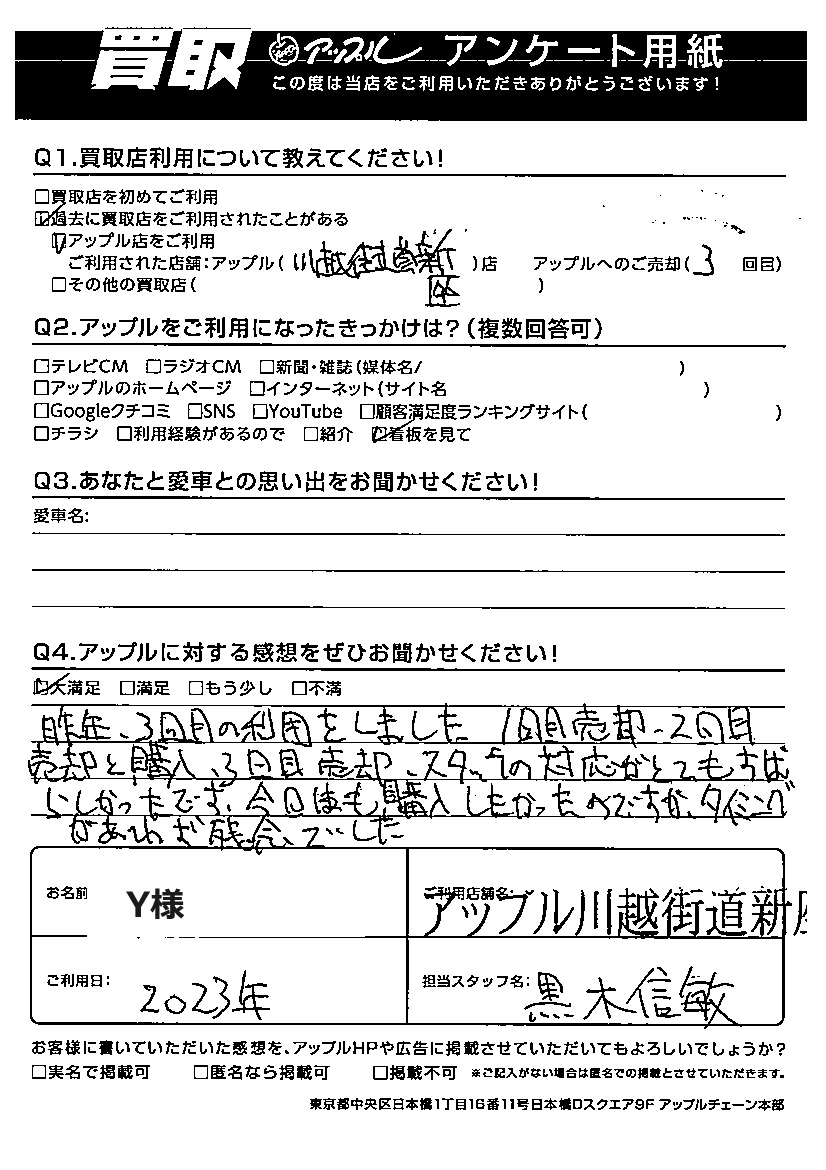 買取 アップル アンケート用紙
この度は当店をご利用いただきありがとうございます!
Q1.買取店利用について教えてください!
□買取店を初めてご利用
☑過去に買取店をご利用されたことがある
☑アップル店をご利用
ご利用された店舗:アップル(川越街道新座)店 アップルへのご売却(3 回目)
□その他の買取店( )
Q2.アップルをご利用になったきっかけは?(複数回答可)
□テレビCM □ラジオCM □新聞・雑誌(媒体名/ )
□アップルのホームページ □インターネット(サイト名 )
□Googleクチコミ □SNS □YouTube □顧客満足度ランキングサイト( )
□チラシ □利用経験があるので □紹介 ☑看板を見て
Q3.あなたと愛車との思い出をお聞かせください!
愛車名:
Q4.アップルに対する感想をぜひお聞かせください!
☑大満足 □満足 □もう少し □不満
昨年、3回目の利用をしました 1回目売却、2回目
売却と購入、3回目売却、スタッフの対応がとてもすば
らしかったです。今回は購入したかったのですが、タイミング
があわず残念でした
お名前 Y様
ご利用店舗名: アップル川越街道新座
ご利用日: 2023年
担当スタッフ名: 黒木信敏
お客様に書いていただいた感想を、アップルHPや広告に掲載させていただいてもよろしいでしょうか?
□実名で掲載可 □匿名なら掲載可 □掲載不可 ※ご記入がない場合は匿名での掲載とさせていただきます。
東京都中央区日本橋1丁目16番11号日本橋Dスクエア9F アップルチェーン本部